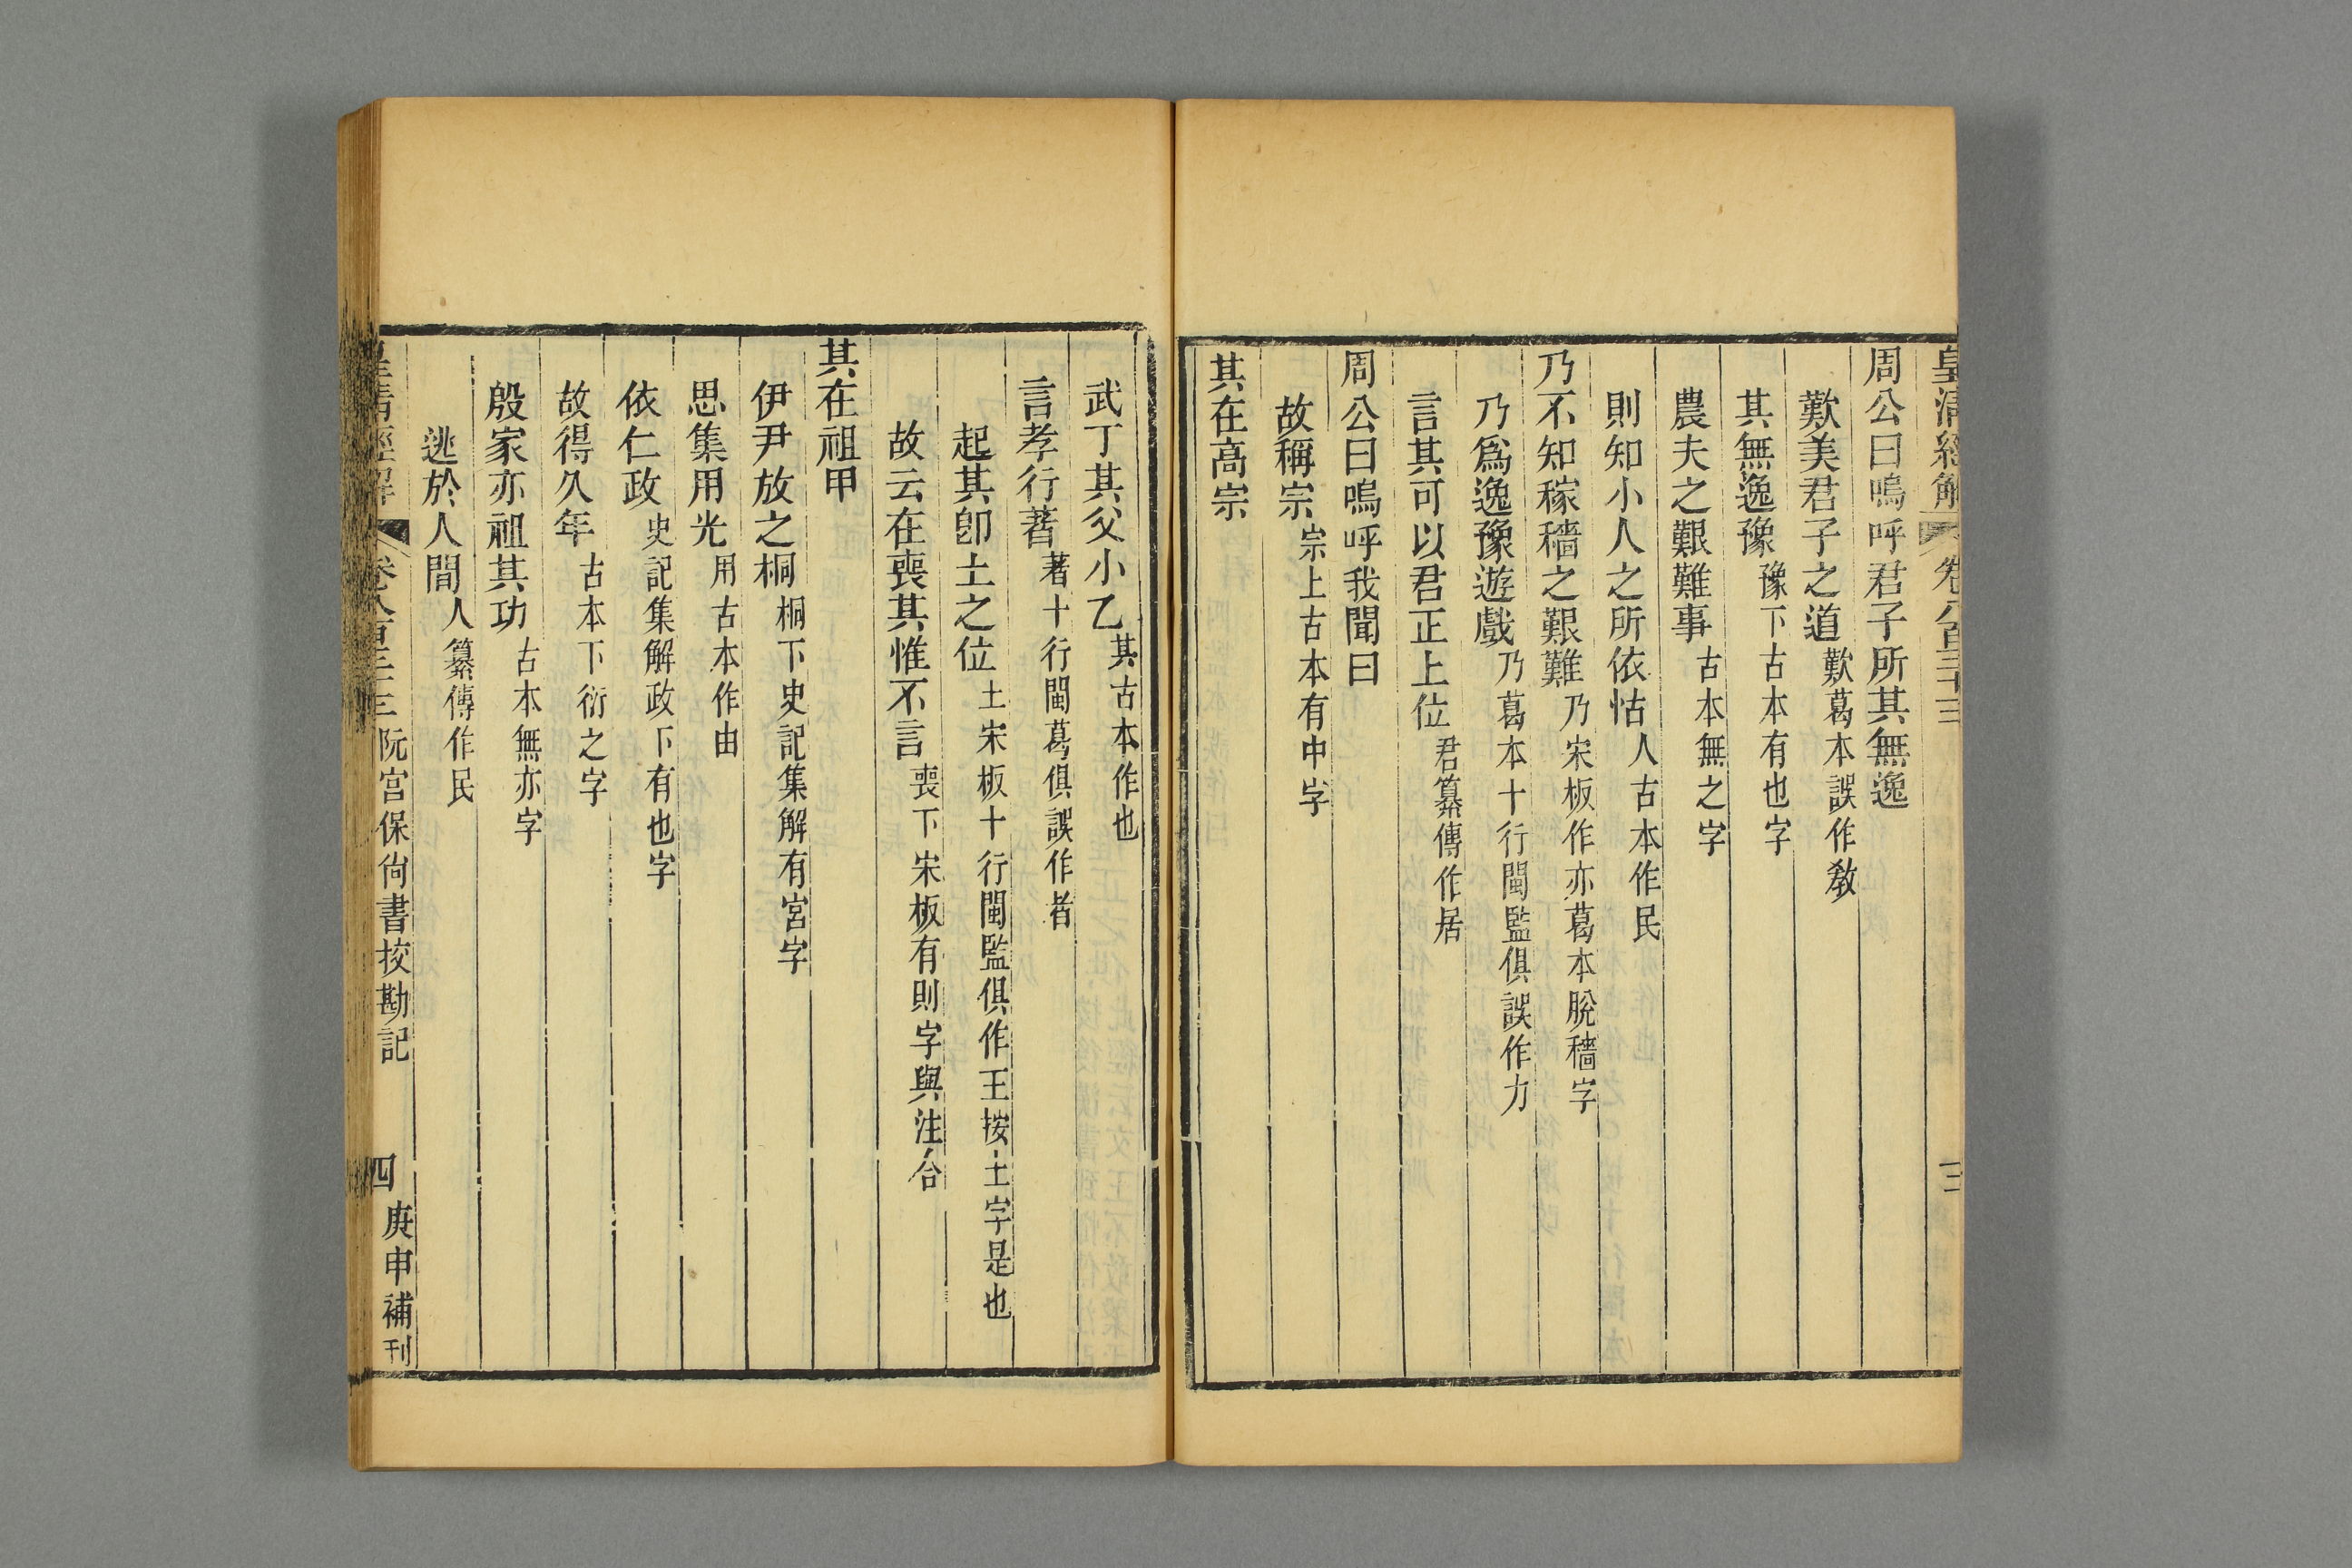 皇清經解 卷八百三十三 三
周公曰嗚呼君子所其無逸
歎美君子之道歎葛本誤作敎
其無逸豫豫下古本有也字
農夫之艱難事古本無之字
則知小人之所依怙人古本作民
乃不知稼穡之艱難乃宋板作亦葛本脫穡字
乃爲逸豫遊戲乃葛本十行閩監俱誤作力
言其可以君正上位君纂傳作居
周公曰嗚呼我聞曰
故稱宗宗上古本有中字
其在高宗
武丁其父小乙其古本作也
言孝行著著十行閩葛俱誤作者
起其卽土之位土宋板十行閩監俱作王按土字是也
故云在喪其惟不言喪下宋板有則字與注合
其在祖甲
伊尹放之桐桐下史記集解有宮字
思集用光用古本作由
依仁政史記集解政下有也字
故得久年古本下衍之字
殷家亦祖其功古本無亦字
逃於人間人纂傳作民
皇清經解 卷八百三十三 阮宮保尙書挍勘記 四 庚申補刊